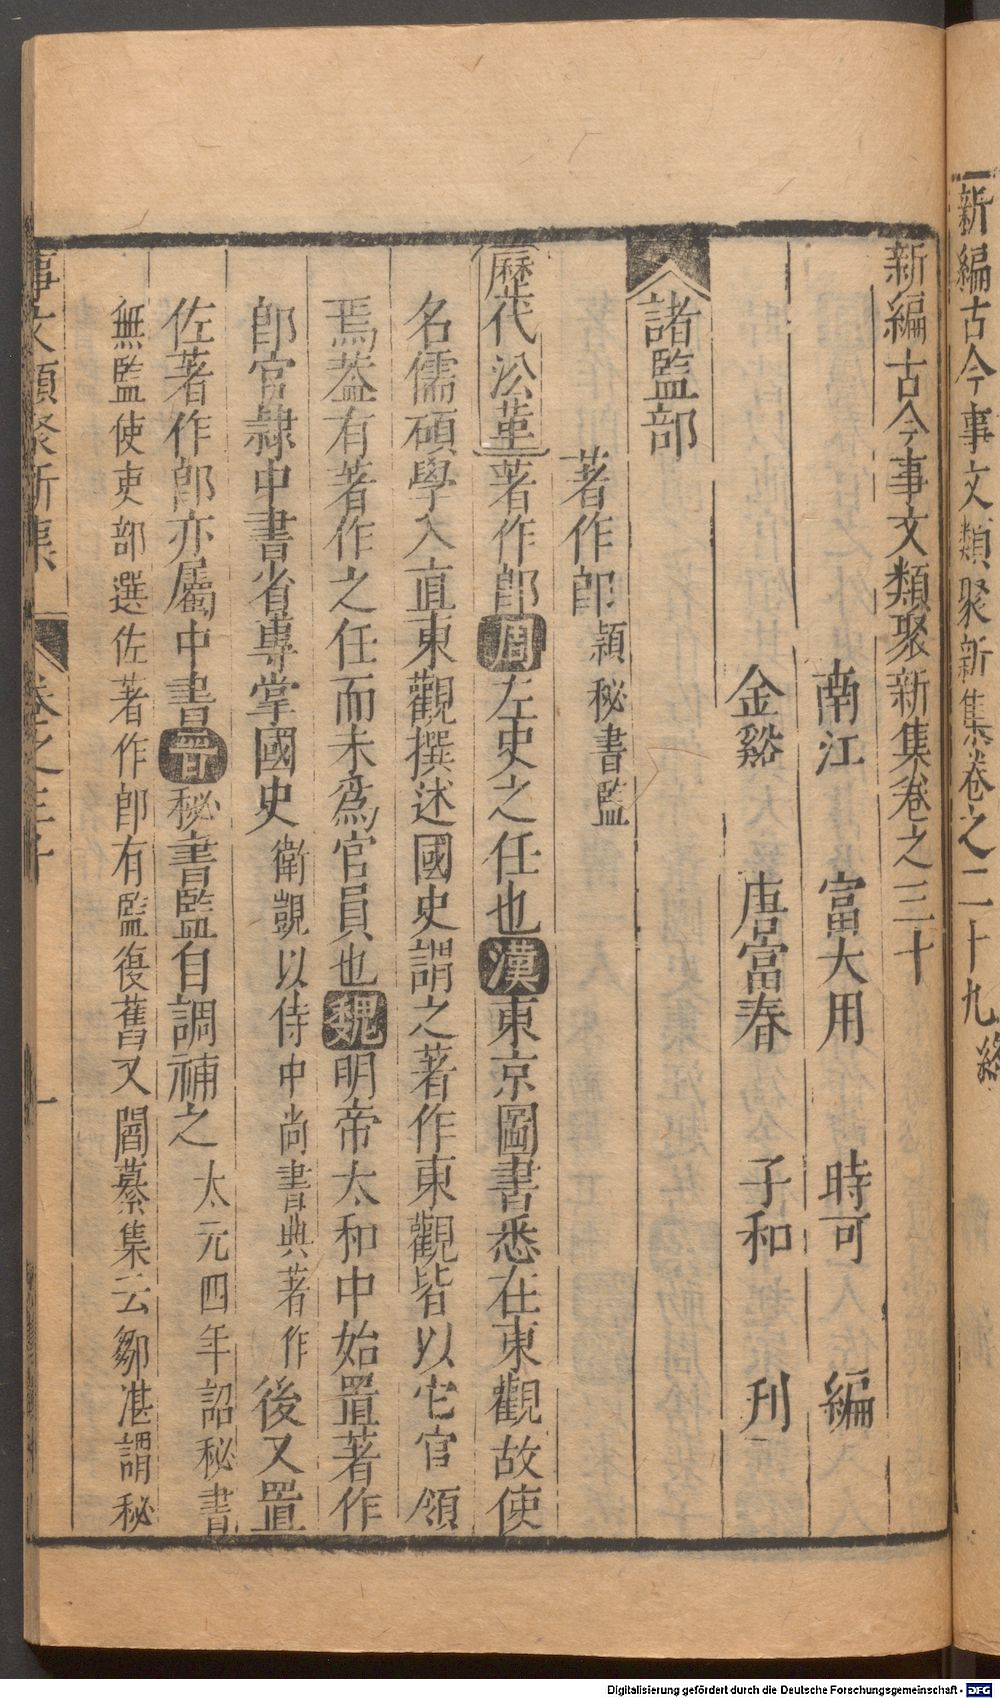 新編古今事文類聚新集卷之二十九終
新編古今事文類聚新集卷之三十
南江 富大用 時可 編
金谿 唐富春 子和 刋
諸監部
著作郎頴秘書監
歷代沿革著作郎周左史之任也漢東京圖書悉在東觀故使
名儒碩學入直東觀撰述國史謂之著作東觀皆以它官領
焉葢有著作之任而未為官員也魏明帝太和中始置著作
郎官隷中書省專掌國史衛覬以侍中尚書典著作後又置
佐著作郎亦屬中書晋秘書監自調補之太元四年詔秘書
無監使吏部選佐著作郎有監復舊又閻纂集云鄒湛謂秘
事文類聚新集 卷之三十 一
Digitalisierung gefördert durch die Deutsche Forschungsgemeinschaft - DFG